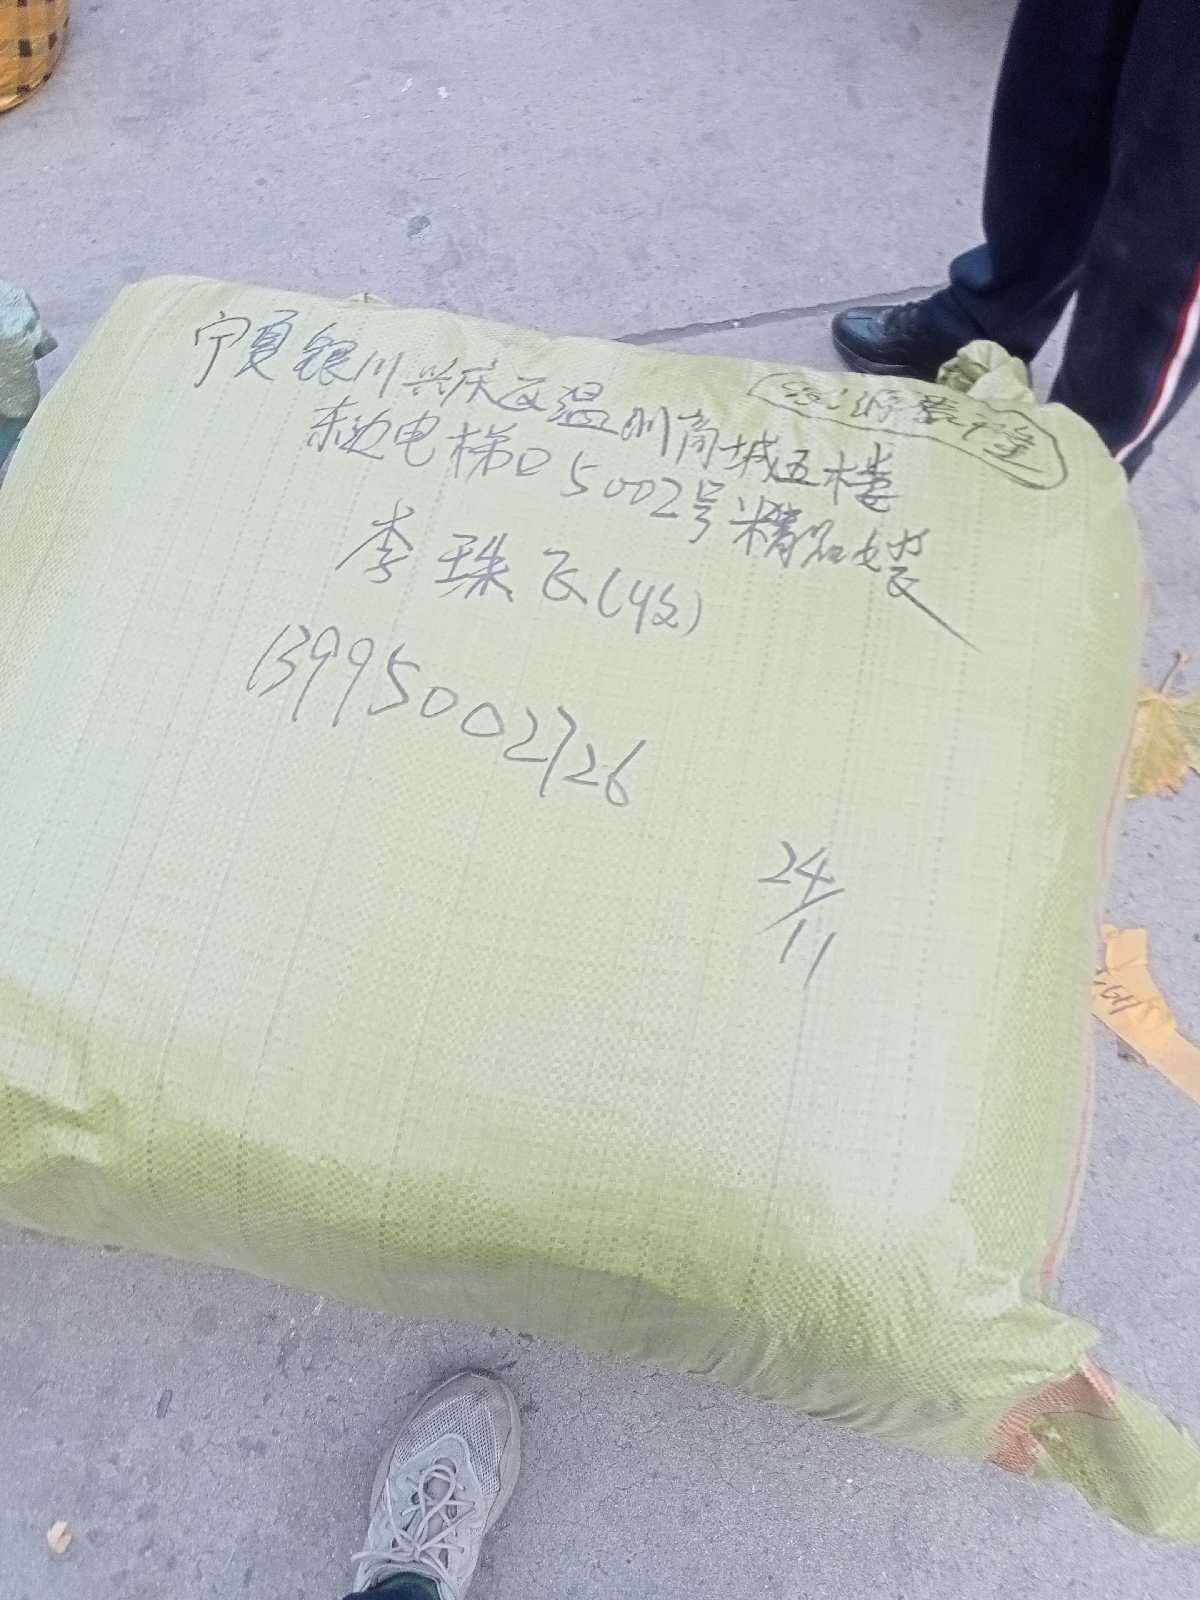 宁夏银川兴庆区温州商城五楼
东边电梯口5002号精品女装
李珠飞(收)
13995002726
24/11